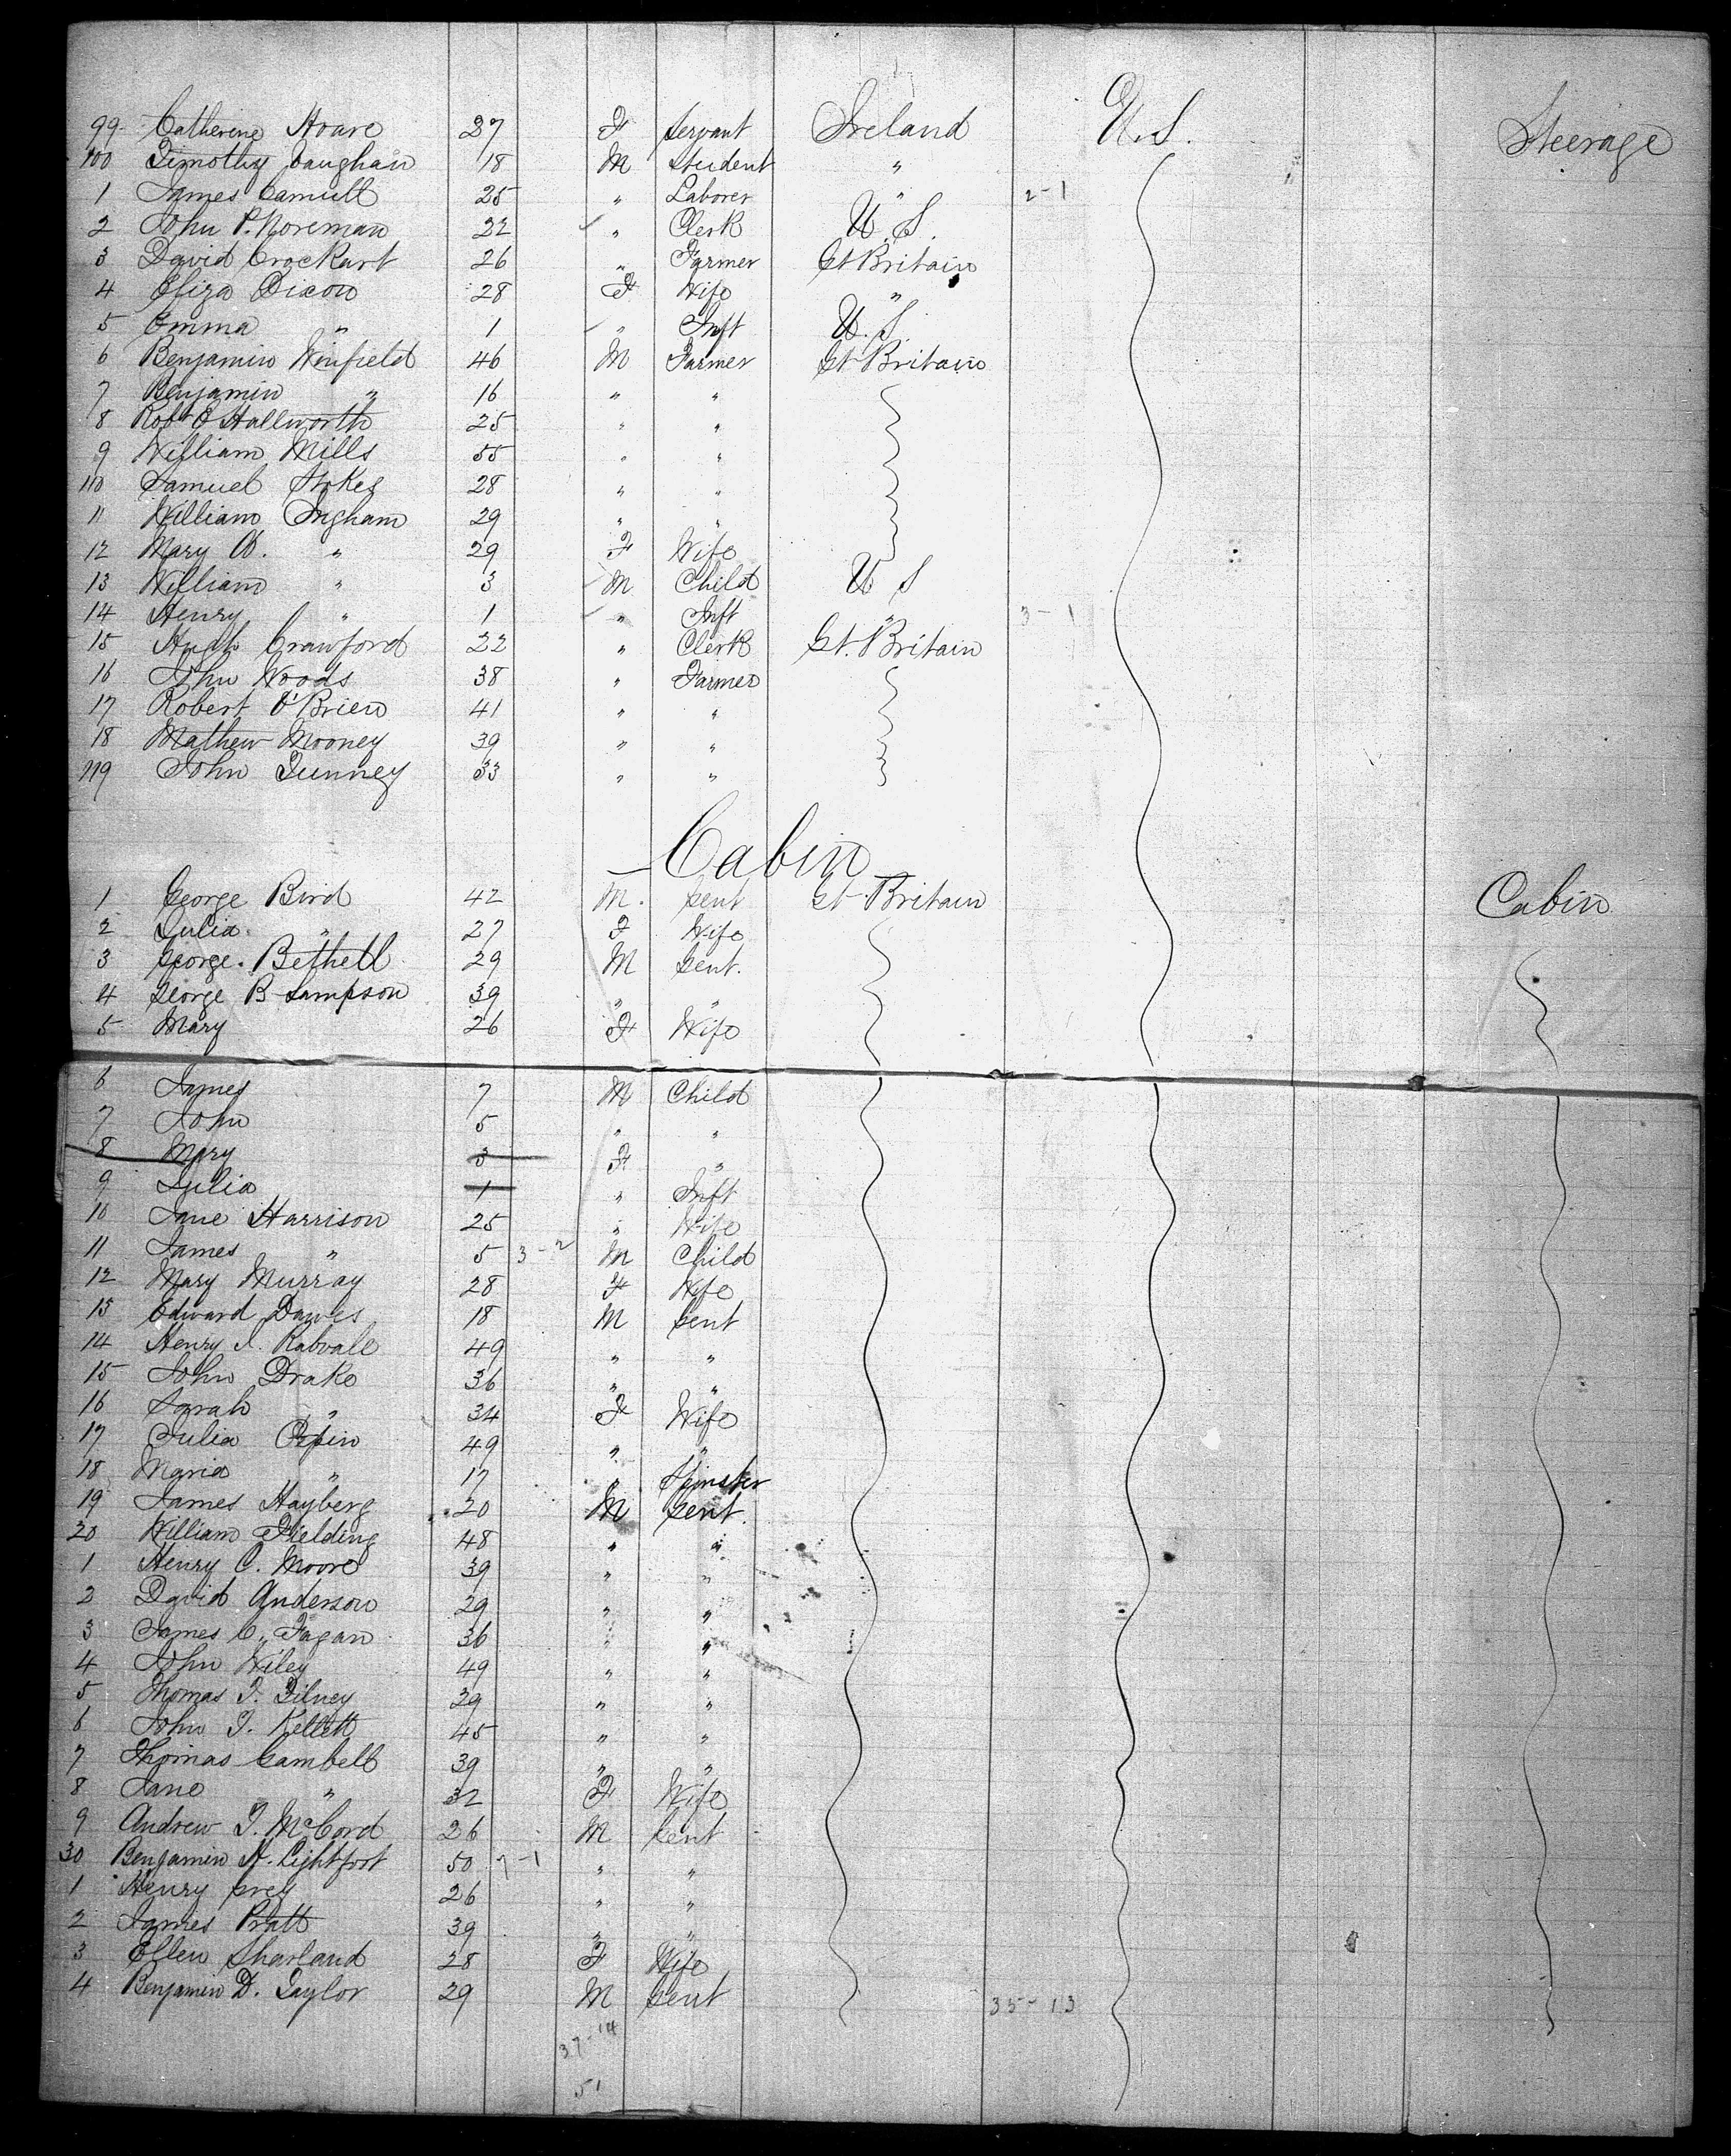 99 Catherine Hoare 27 F Servant Ireland U.S. Steerage
100 Timothy Vaughan 18 M Student "
1 James 25 " Laborer " 2-1
2 John P. Noreman 22 " Clerk U.S.
3 David Crockart 26 " Farmer Gt Britain
4 Eliza Dixon 28 F Wife "
5 Emma " 1 " Inft U.S.
6 Benjamin Winfield 46 M Farmer Gt Britain
7 Benjamin " 16 " "
8 Robt Hallworth 25 " "
9 William Mills 55 " "
110 Samuel Stokes 28 " "
11 William Ingham 29 " "
12 Mary A. " 29 F Wife
13 William " 3 M Child U S
14 Henry " 1 " Inft " 3-1
15 Hugh Crawford 22 " Clerk Gt. Britain
16 John Woods 38 " Farmer
17 Robert O'Brien 41 " "
18 Mathew Mooney 39 " "
119 John Tunney 33 " "
Cabin
1 George Bird 42 M. Gent Gt Britain Cabin
2 Julia " 27 F Wife
3 George Bethell 29 M Gent.
4 George B Sampson 39 " "
5 Mary 26 F Wife
6 James 7 M Child
7 John 5 " "
8 Mary 3 F "
9 Julia 1 " Inft
10 Jane Harrison 25 " Wife
11 James " 5 3-2 M Child
12 Mary Murray 28 F Wife
13 Edward Dawes 18 M Gent
14 Henry 49 " "
15 John Drake 36 " "
16 Sarah " 34 F Wife
17 Julia 49 " "
18 Maria " 17 " Spinster
19 James Hayberg 20 M Gent.
20 William Fielding 48 " "
1 Henry C. Moore 39 " "
2 David Anderson 29 " "
3 James C. Fagan 36 " "
4 John Wiley 49 " "
5 Thomas J. Tilney 29 " "
6 John J. Kellett 45 " "
7 Thomas Cambell 39 " "
8 Jane " 32 F Wife
9 Andrew J. McCord 26 M Gent
30 Benjamin H. Lightfoot 50 7-1 " "
1 Henry Grey 26 " "
2 James Pratt 39 " "
3 Ellen Sharland 28 F Wife
4 Benjamin D. Taylor 29 M Gent 35-13
37-14
51